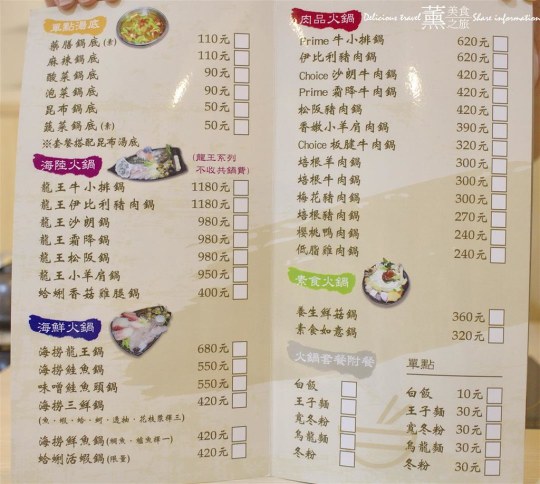 單點湯底
藥膳鍋底(素) 110元
麻辣鍋底 110元
酸菜鍋底 90元
泡菜鍋底 90元
昆布鍋底 50元
蔬菜鍋底(素) 50元
※套餐搭配昆布湯底
海陸火鍋
(龍王系列
不收共鍋費)
龍王牛小排鍋 1180元
龍王伊比利豬肉鍋 1180元
龍王沙朗鍋 980元
龍王霜降鍋 980元
龍王松阪鍋 980元
龍王小羊肩鍋 950元
蛤蜊香菇雞腿鍋 400元
海鮮火鍋
海撈龍王鍋 680元
海撈鮭魚鍋 550元
味噌鮭魚頭鍋 550元
海撈三鮮鍋 420元
(魚、蝦、蛤、蚵、透抽、花枝漿擇三)
海撈鮮魚鍋(鯛魚、鱸魚擇一) 420元
蛤蜊活蝦鍋(限量) 420元
Delicious travel 薰 美食之旅 Share information
肉品火鍋
Prime 牛小排鍋 620元
伊比利豬肉鍋 620元
Choice 沙朗牛肉鍋 420元
Prime 霜降牛肉鍋 420元
松阪豬肉鍋 420元
香嫩小羊肩肉鍋 390元
Choice 板腱牛肉鍋 320元
培根羊肉鍋 300元
培根牛肉鍋 300元
梅花豬肉鍋 300元
培根豬肉鍋 270元
櫻桃鴨肉鍋 240元
低脂雞肉鍋 240元
素食火鍋
養生鮮菇鍋 360元
素食如意鍋 320元
火鍋套餐附餐
白飯
王子麵
寬冬粉
烏龍麵
冬粉
單點
白飯 10元
王子麵 30元
寬冬粉 30元
烏龍麵 30元
冬粉 30元